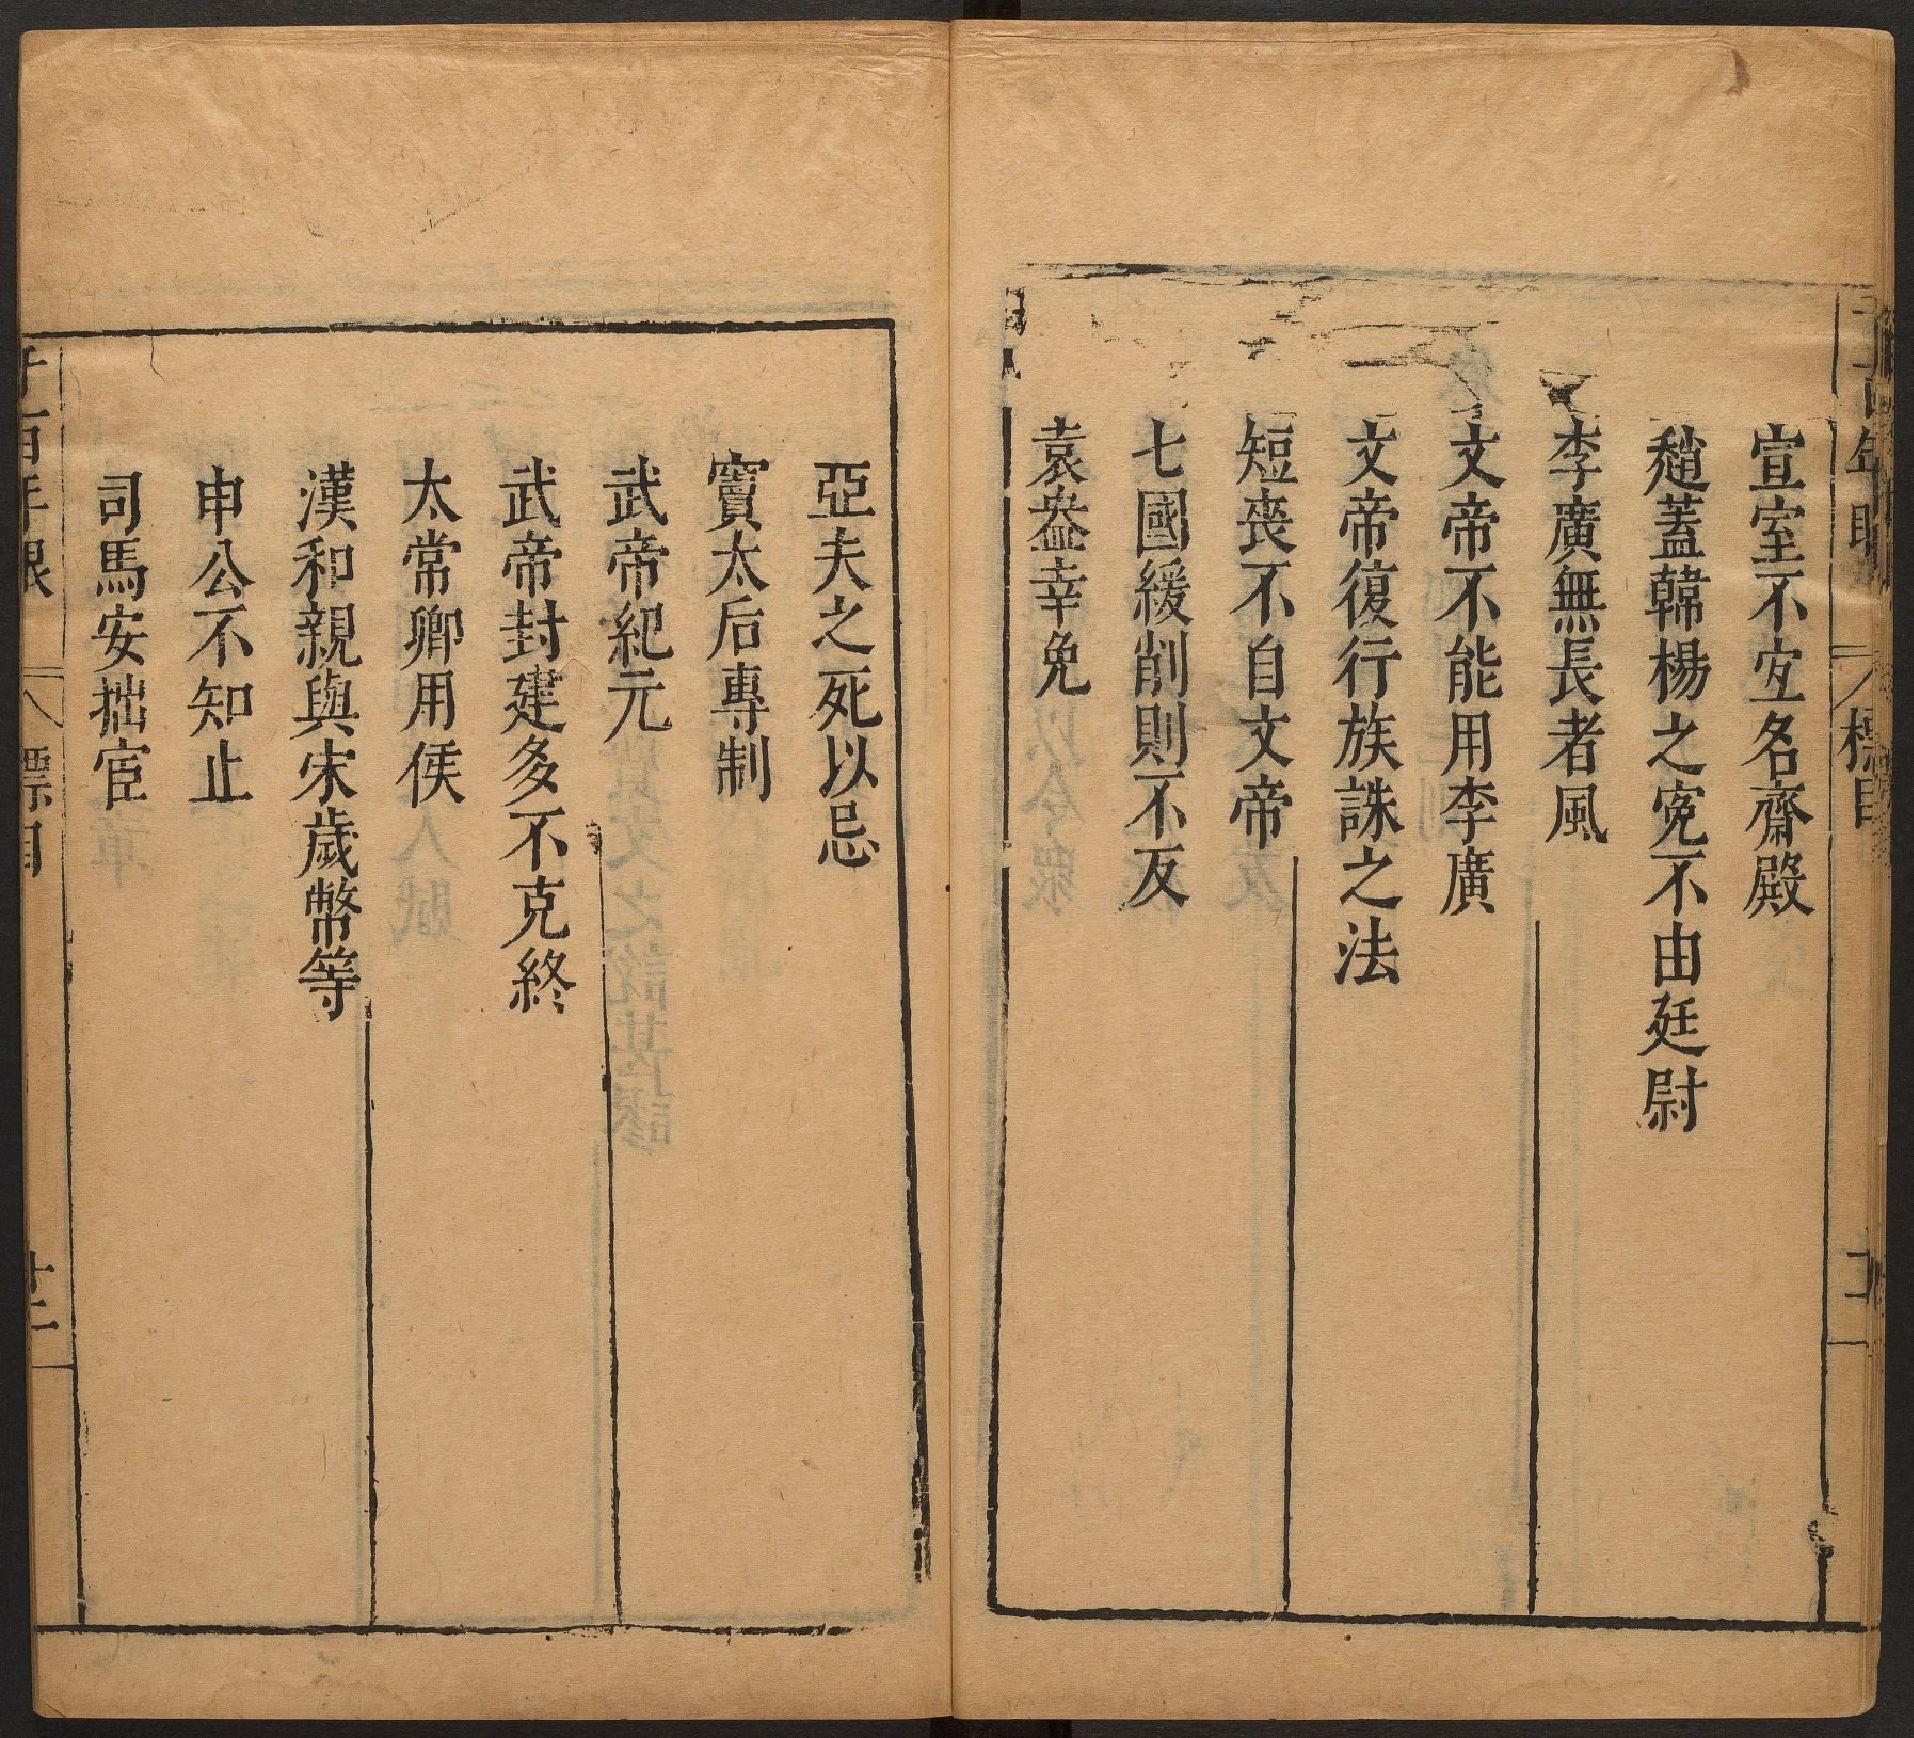 宣室不宐名齋殿
趙蓋韓楊之寃不由廷尉
李廣無長者風
文帝不能用李廣
文帝復行族誅之法
短喪不自文帝
七國緩削則不反
袁盎幸免
亞夫之死以忌
竇太后專制
武帝紀元
武帝封建多不克終
太常卿用侯
漢和親與宋歲幣等
申公不知止
司馬安拙宦
千百年眼
標目
十二